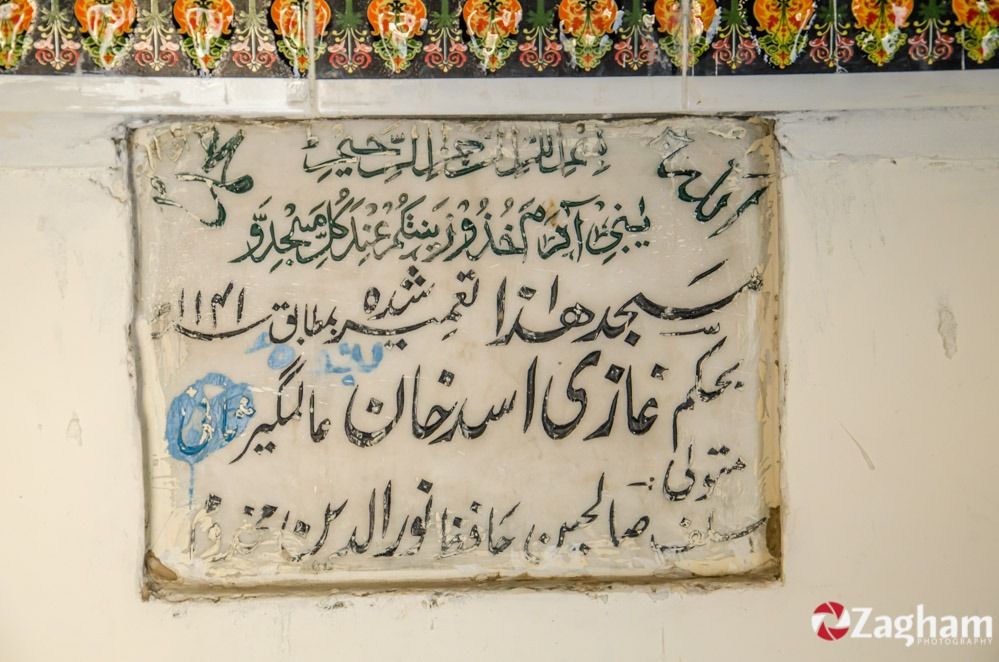 بسم الله الرحمن الرحيم
يبني آدم خذوا زينتكم عند كل مسجد و
مسجد هذا تعمیر شدہ بمطابق سنہ ۱۱۴۱
بحکم غازی اسد خان عالمگیر ثانی
متولی
سلف صالحین حافظ نور الدین مخدوم
Zagham
PHOTOGRAPHY